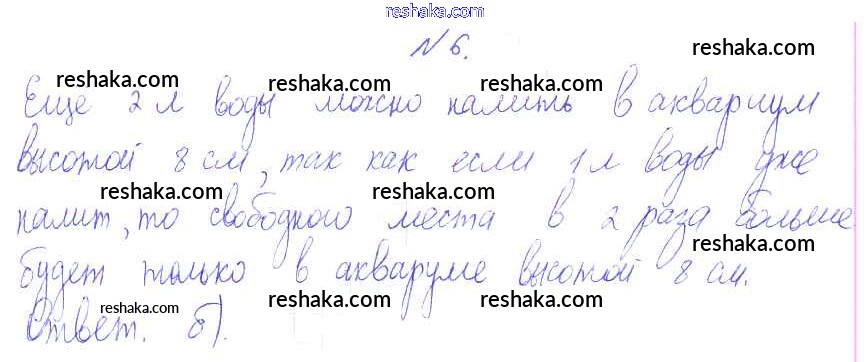 reshaka.com
№ 6.
reshaka.com
reshaka.com reshaka.com reshaka.com
Еще 2 л воды можно налить в аквариум
reshaka.com
высотой 8 см, так как если 1 л воды уже
reshaka.com reshaka.com reshaka.com
налит, то свободного места в 2 раза больше
reshaka.com
будет только в акваруме высотой 8 см.
reshaka.com reshaka.com reshaka.com
Ответ. б).
reshaka.com